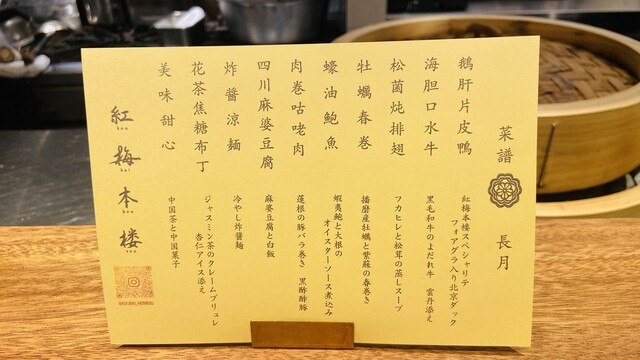 菜譜
長月
鵝肝片皮鴨
紅梅本楼スペシャリテ
フォアグラ入り北京ダック
海胆口水牛
黒毛和牛のよだれ牛 雲丹添え
松菌炖排翅
フカヒレと松茸の蒸しスープ
牡蠣春巻
播磨産牡蠣と紫蘇の春巻き
蠔油鮑魚
蝦夷鮑と大根の
オイスターソース煮込み
肉巻咕咾肉
蓮根の豚バラ巻き 黒酢酢豚
四川麻婆豆腐
麻婆豆腐と白飯
炸醤涼麺
冷やし炸醤麺
花茶焦糖布丁
ジャスミン茶のクレームブリュレ
杏仁アイス添え
美味甜心
中国茶と中国菓子
紅梅本楼
kou
bai
hon
rou